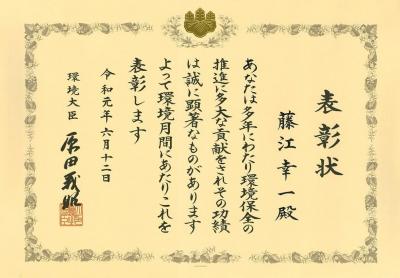 表彰状
藤江幸一殿
あなたは多年にわたり環境保全の
推進に多大な貢献をされその功績
は誠に顕著なものがあります
よって環境月間にあたりこれを
表彰します
令和元年六月十二日
環境大臣
原田義昭